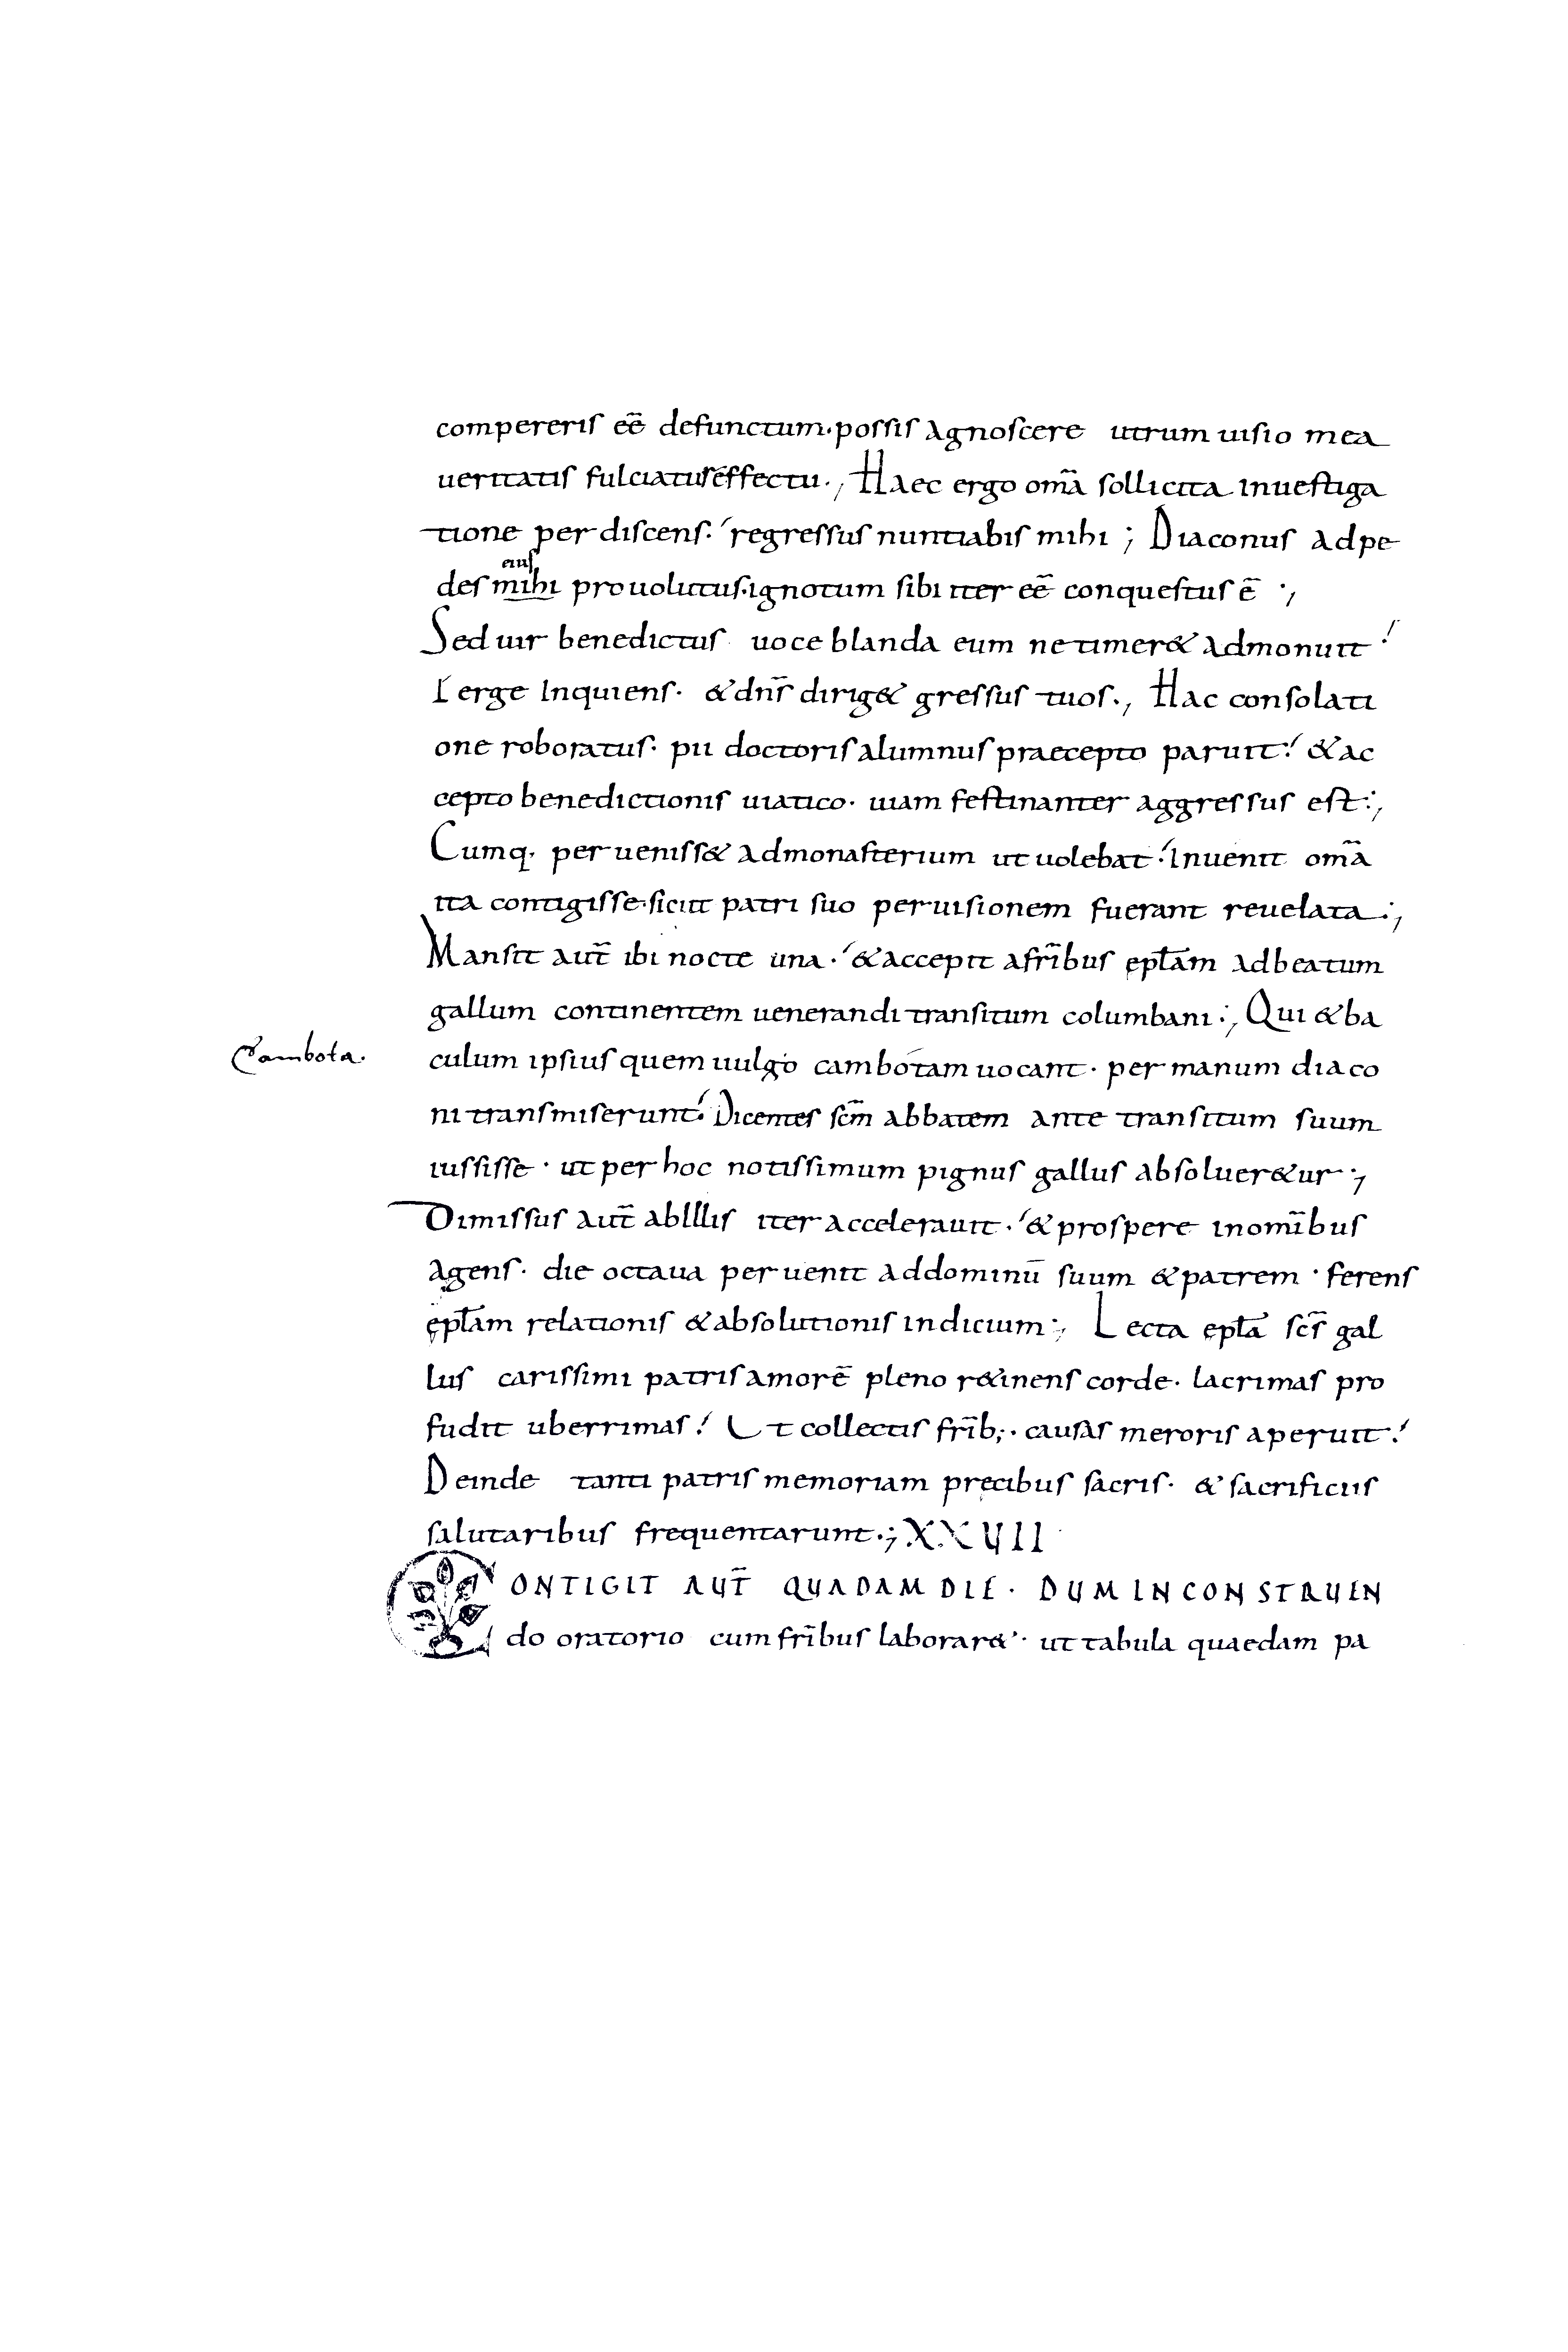 compereris eē defunctum · possis agnoscere utrum uisio mea
ueritatis fulciatur effectu ., Haec ergo om̃a sollicita inuestiga
tione per discens · regressus nuntiabis mihi ; Diaconus ad pe
eius
des mihi prouolutus · ignotum sibi iter eē conquestus ē ·,
Sed uir benedictus uoce blanda eum ne timer& admonuit
Perge Inquiens · & dn̄s dirig& gressus tuos ., Hac consolati
one roboratus · pii doctoris alumnus praecepto paruit & ac
cepto benedictionis uiatico · uiam festinanter aggressus est :,
Cumq· perueniss& ad monasterium ut uolebat Inuenit om̃a
ita contigisse · sicut patri suo per uisionem fuerant reuelata :,
Mansit aut̄ ibi nocte una · & accepit a fr̄ibus ep̄tam ad beatum
gallum continentem uenerandi transitum columbani :, Qui & ba
Cambota.
culum ipsius quem uulgo cambotam uocant · per manum diaco
ni transmiserunt Dicentes sc̄m abbatem ante transitum suum
iussisse · ut per hoc notissimum pignus gallus absoluer&ur ;
Dimissus aut̄ ab Illis iter accelerauit · & prospere in om̄ibus
agens · die octaua peruenit ad dominū suum & patrem · ferens
ępl̄am relationis & absolutionis indicium :, Lecta ępl̄a sc̄s gal
lus carissimi patris amorē pleno r&inens corde · lacrimas pro
fudit uberrimas Ut collectis fr̄ib; · causas meroris aperuit
Deinde tanti patris memoriam precibus sacris · & sacrificiis
salutaribus frequentarunt .; XXVII
CONTIGIT AUT̄ QUADAM DIE · DUM IN CONSTRUEN
do oratorio cum fr̄ibus laborar& · ut tabula quaedam pa